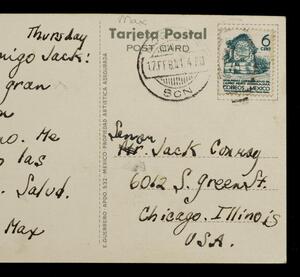 Max
Tarjeta Postal
POST CARD
Thursday
migo Jack:
gran
no. Me
las
Salud.
Max
6
CORREOS MEXICO
Senor
Mr. Jack Conroy
6012 S. Green St.
Chicago, Illinois
U.S.A.
E. GUERRERO - APDO. 532 - MEXICO - PROPIEDAD ARTISTICA ASEGURADA